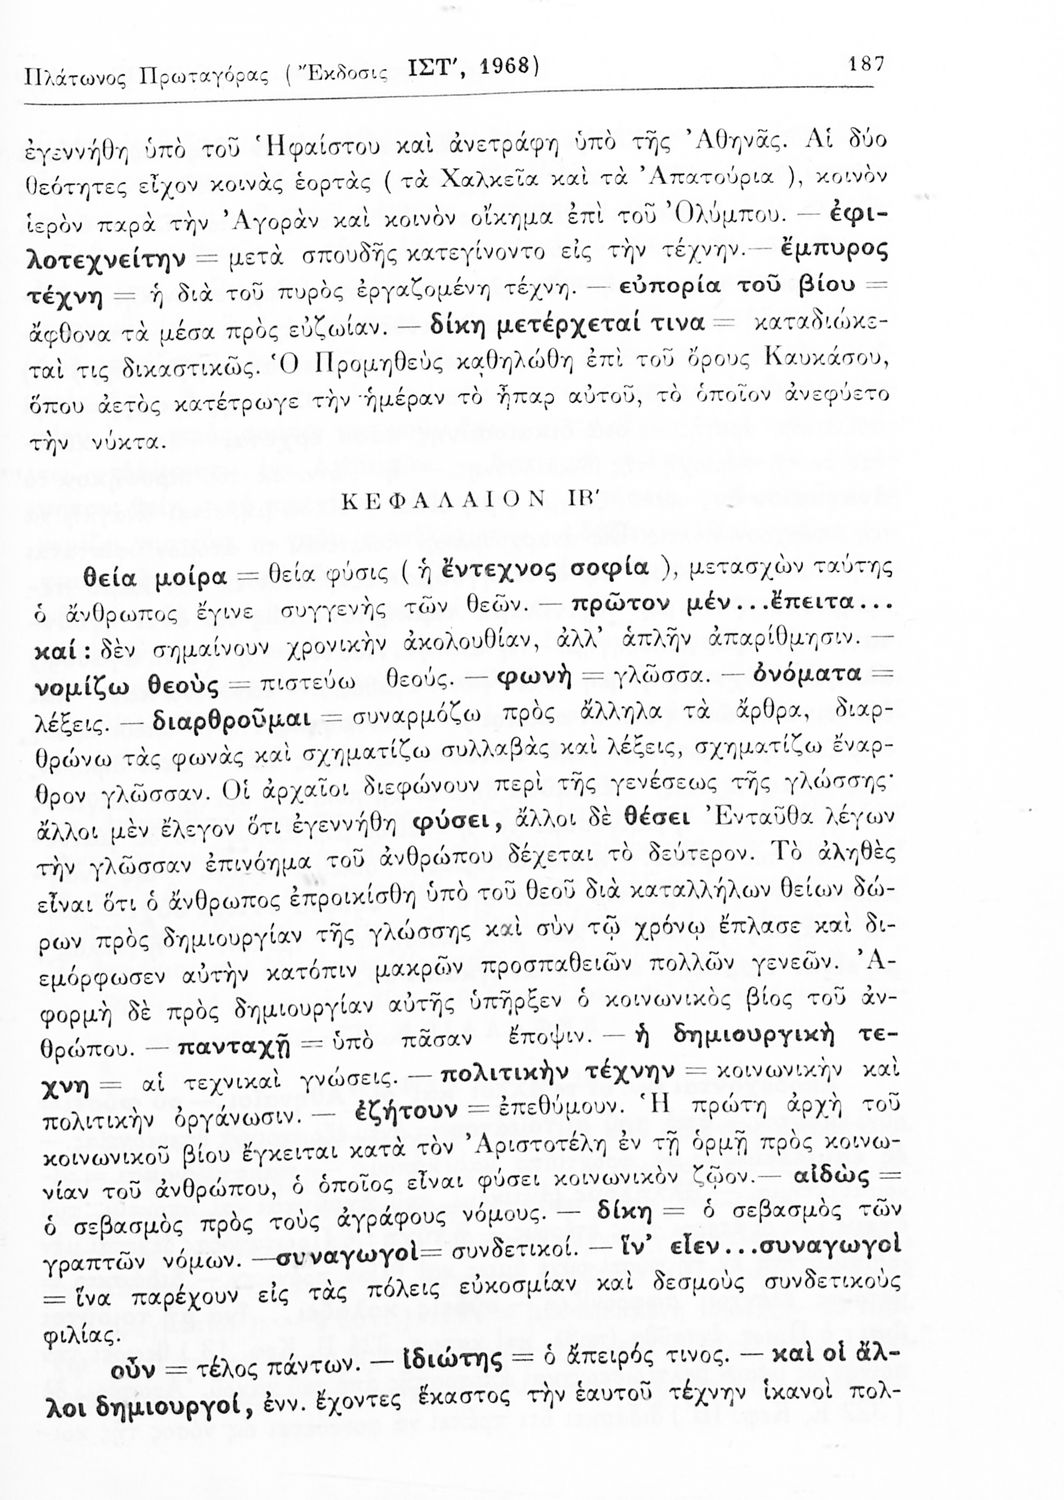 Πλάτωνος Πρωταγόρας ( Ἔκδοσις ΙΣΤ', 1968) 187
ἐγεννήθη ὑπὸ τοῦ Ἡφαίστου καὶ ἀνετράφη ὑπὸ τῆς Ἀθηνᾶς. Αἱ δύο
θεότητες εἶχον κοινὰς ἑορτὰς ( τὰ Χαλκεῖα καὶ τὰ Ἀπατούρια ), κοινὸν
ἱερὸν παρὰ τὴν Ἀγορὰν καὶ κοινὸν οἴκημα ἐπὶ τοῦ Ὀλύμπου. — ἐφι-
λοτεχνείτην = μετὰ σπουδῆς κατεγίνοντο εἰς τὴν τέχνην. — ἔμπυρος
τέχνη = ἡ διὰ τοῦ πυρὸς ἐργαζομένη τέχνη. — εὐπορία τοῦ βίου =
ἄφθονα τὰ μέσα πρὸς εὐζωίαν. — δίκη μετέρχεταί τινα = καταδιώκε-
ταὶ τις δικαστικῶς. Ὁ Προμηθεὺς καθηλώθη ἐπὶ τοῦ ὄρους Καυκάσου,
ὅπου ἀετὸς κατέτρωγε τὴν ἡμέραν τὸ ἧπαρ αὐτοῦ, τὸ ὁποῖον ἀνεφύετο
τὴν νύκτα.
ΚΕΦΑΛΑΙΟΝ ΙΒ'
θεία μοίρα = θεία φύσις ( ἡ ἔντεχνος σοφία ), μετασχὼν ταύτης
ὁ ἄνθρωπος ἔγινε συγγενὴς τῶν θεῶν. — πρῶτον μέν...ἔπειτα...
καί : δὲν σημαίνουν χρονικὴν ἀκολουθίαν, ἀλλ' ἁπλῆν ἀπαρίθμησιν. —
νομίζω θεοὺς = πιστεύω θεούς. — φωνὴ = γλῶσσα. — ὀνόματα =
λέξεις. — διαρθροῦμαι = συναρμόζω πρὸς ἄλληλα τὰ ἄρθρα, διαρ-
θρώνω τὰς φωνὰς καὶ σχηματίζω συλλαβὰς καὶ λέξεις, σχηματίζω ἔναρ-
θρον γλῶσσαν. Οἱ ἀρχαῖοι διεφώνουν περὶ τῆς γενέσεως τῆς γλώσσης·
ἄλλοι μὲν ἔλεγον ὅτι ἐγεννήθη φύσει, ἄλλοι δὲ θέσει Ἐνταῦθα λέγων
τὴν γλῶσσαν ἐπινόημα τοῦ ἀνθρώπου δέχεται τὸ δεύτερον. Τὸ ἀληθὲς
εἶναι ὅτι ὁ ἄνθρωπος ἐπροικίσθη ὑπὸ τοῦ θεοῦ διὰ καταλλήλων θείων δώ-
ρων πρὸς δημιουργίαν τῆς γλώσσης καὶ σὺν τῷ χρόνῳ ἔπλασε καὶ δι-
εμόρφωσεν αὐτὴν κατόπιν μακρῶν προσπαθειῶν πολλῶν γενεῶν. Ἀ-
φορμὴ δὲ πρὸς δημιουργίαν αὐτῆς ὑπῆρξεν ὁ κοινωνικὸς βίος τοῦ ἀν-
θρώπου. — πανταχῇ = ὑπὸ πᾶσαν ἔποψιν. — ἡ δημιουργικὴ τέ-
χνη = αἱ τεχνικαὶ γνώσεις. — πολιτικὴν τέχνην = κοινωνικὴν καὶ
πολιτικὴν ὀργάνωσιν. — ἐζήτουν = ἐπεθύμουν. Ἡ πρώτη ἀρχὴ τοῦ
κοινωνικοῦ βίου ἔγκειται κατὰ τὸν Ἀριστοτέλη ἐν τῇ ὁρμῇ πρὸς κοινω-
νίαν τοῦ ἀνθρώπου, ὁ ὁποῖος εἶναι φύσει κοινωνικὸν ζῷον. — αἰδὼς =
ὁ σεβασμὸς πρὸς τοὺς ἀγράφους νόμους. — δίκη = ὁ σεβασμὸς τῶν
γραπτῶν νόμων. — συναγωγοὶ = συνδετικοί. — ἵν' εἶεν...συναγωγοὶ
= ἵνα παρέχουν εἰς τὰς πόλεις εὐκοσμίαν καὶ δεσμοὺς συνδετικοὺς
φιλίας.
οὖν = τέλος πάντων. — ἰδιώτης = ὁ ἄπειρός τινος. — καὶ οἱ ἄλ-
λοι δημιουργοί, ἐνν. ἔχοντες ἕκαστος τὴν ἑαυτοῦ τέχνην ἱκανοὶ πολ-